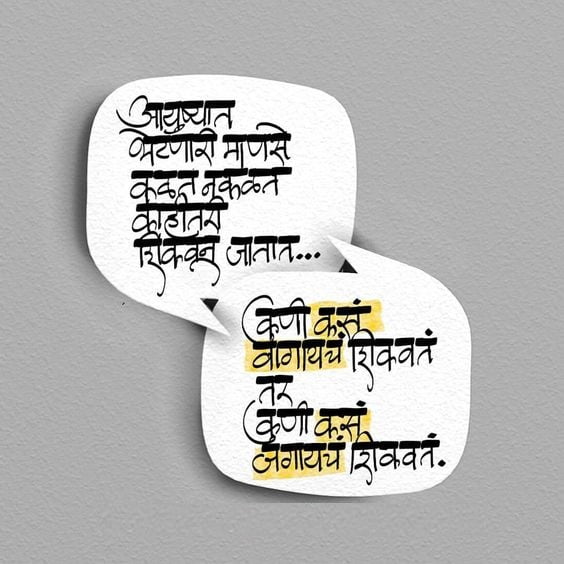 आयुष्यात
भेटणारी माणसे
कळत नकळत
काहीतरी
शिकवून जातात...
कुणी कसं
वागायचं शिकवतं
तर
कुणी कसं
जगायचं शिकवतं.